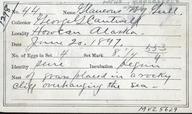 No. 44 Name Glaucous Wg Gull.
Collector George G. Cantwell
Locality Howcan Alaska.
Date June 20. 1897.
553
No. of Eggs in Set 4 Set Mark 8/4 4
Identity sure Incubation Begun
Nest of grass placed in a rocky
cliff overhanging the sea—
MVZ 5629